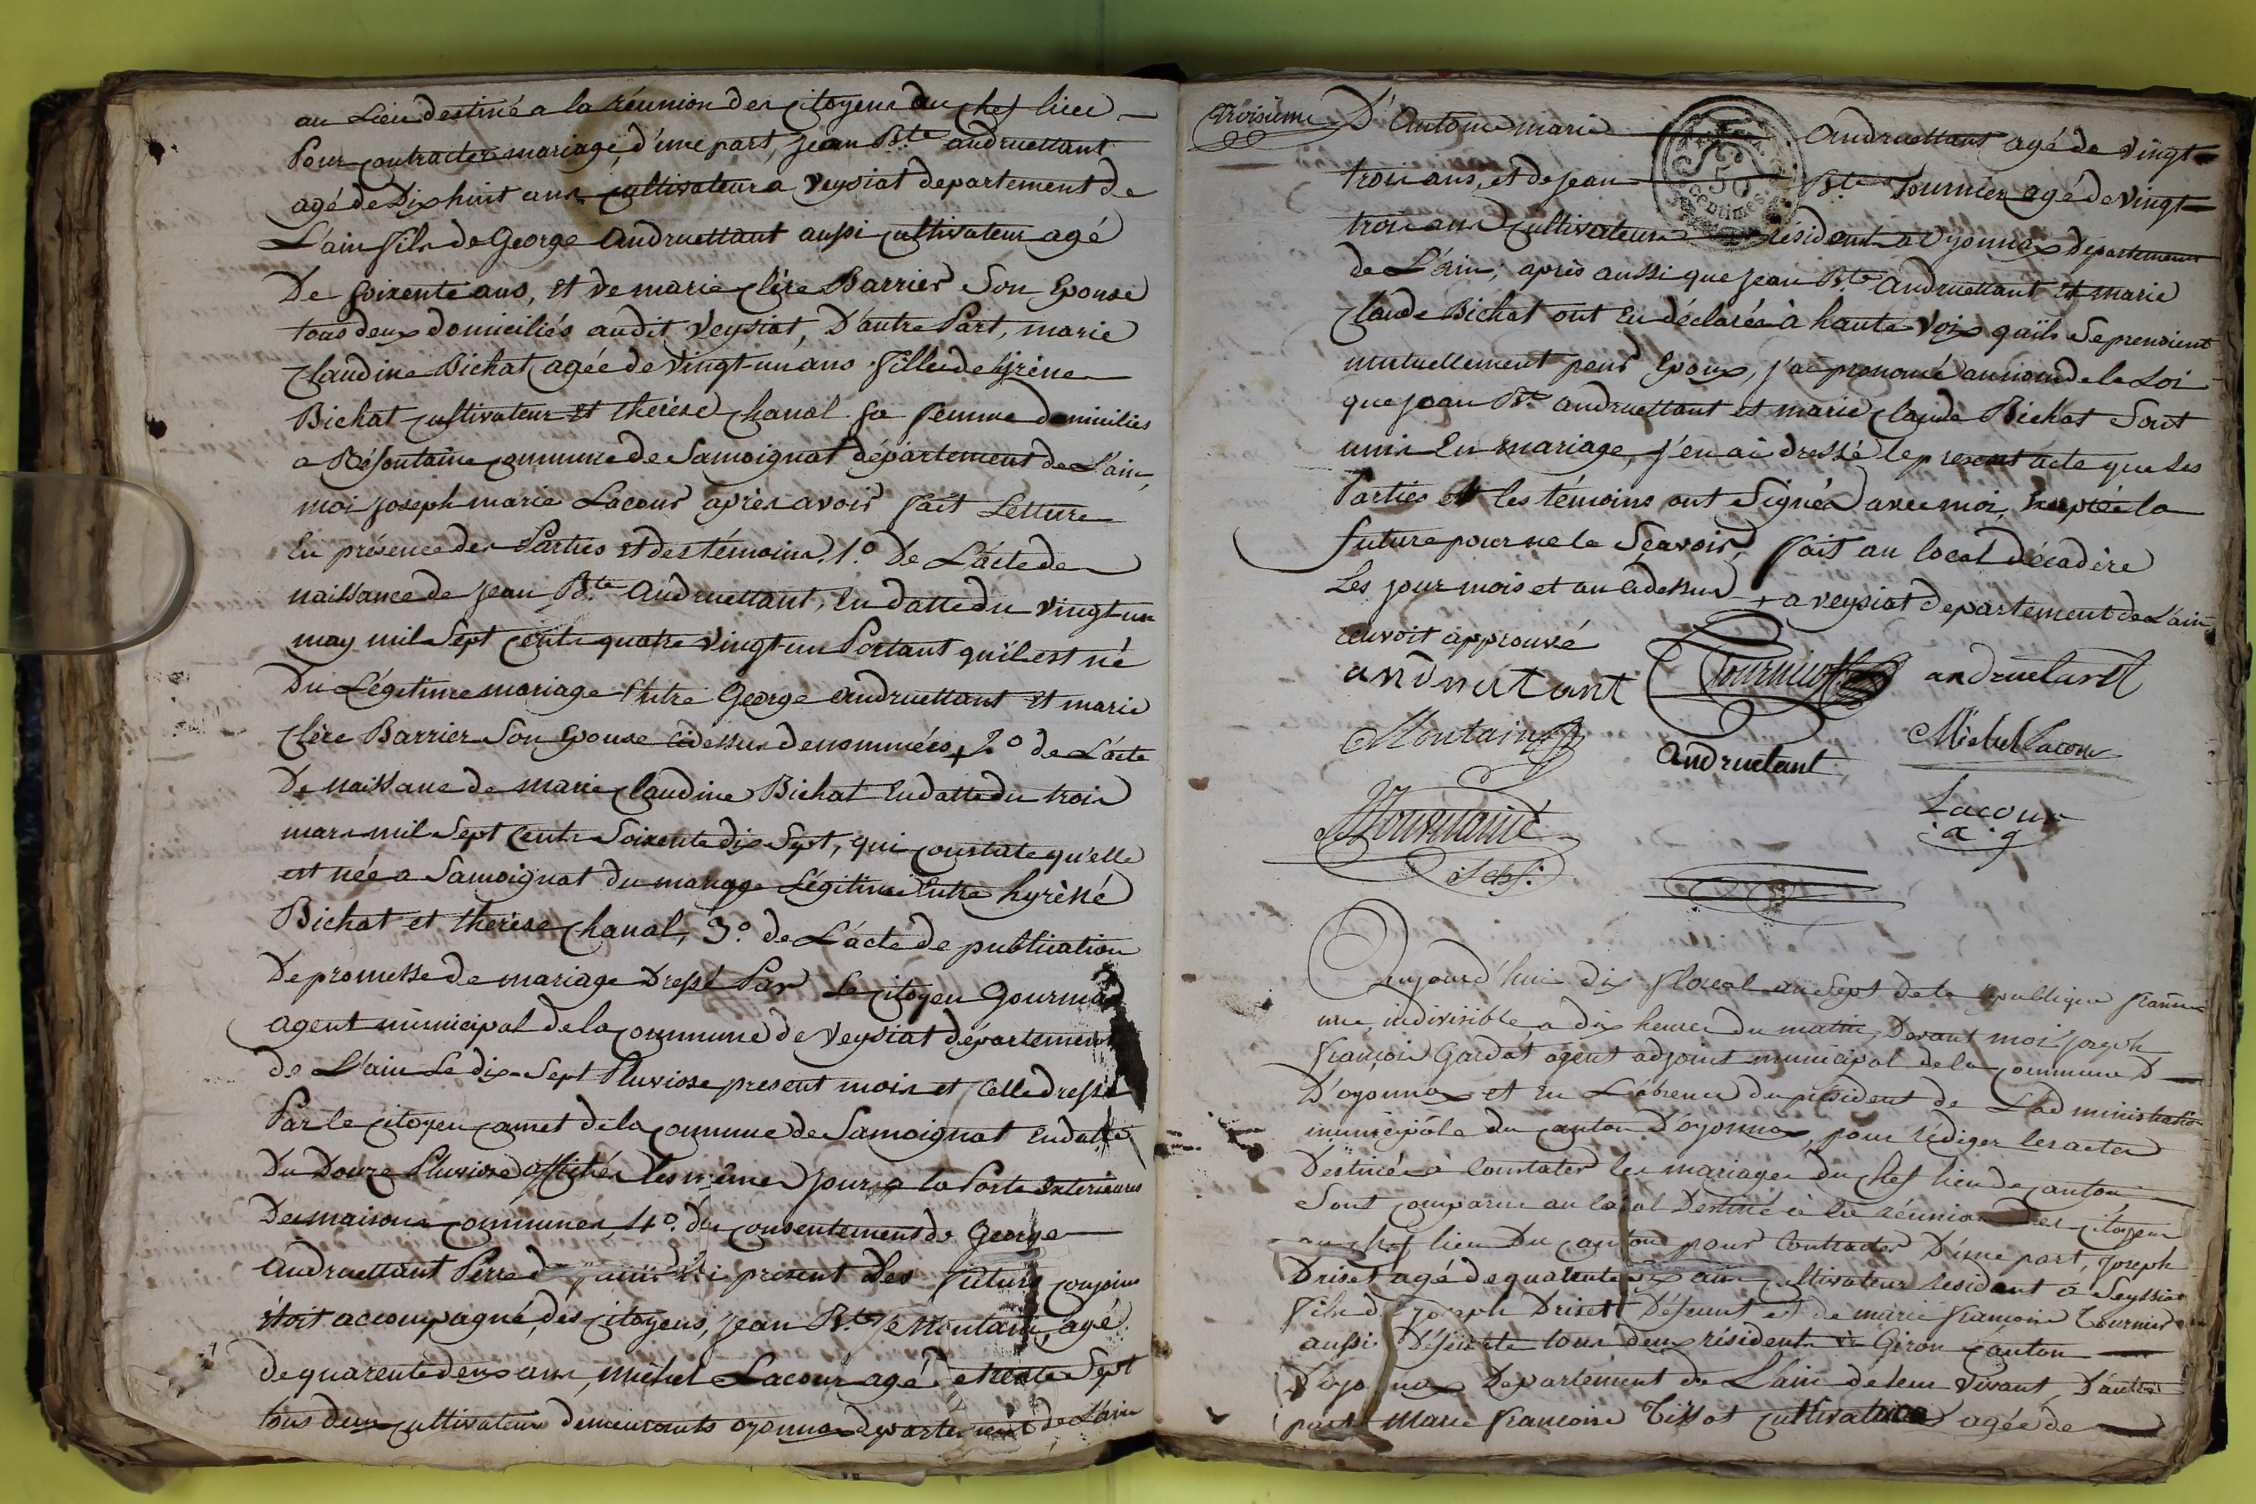 au Lieu destiné a la réunion des citoyens du chef lieu
Pour contracter mariage, d'une part, jean Bte andruettant
agé de Dix huit ans cultivateur a Veysiat departement de
L'ain fils de George Andruettant aussi cultivateur agé
De soixente ans, et de marie clère Barrier Son Epouse
tous deux domiciliés audit Veysiat, D'autre Part, marie
claudine Bichat agée de vingt-un ans fille de
Bichat cultivateur et therèse chanal sa femme domiciliés
a Réfontaine commune de Samoignat département de L'ain,
moi joseph marie Lacour après avoir fait Letture
En présence des Parties et des témoins, 1.º De L'acte de
naissance de jean Bte Andruettant, En datte du vingt-un
may mil Sept cents quatre vingt-un Portant qu'il est né
Du Légitime mariage Entre George Andruettant et marie
clère Barrier Son Epouse cidessus denommées, + 2º de L'acte
De naissance de marie claudine Bichat En datte du trois
mars mil Sept Cents Soixente dix Sept, qui constate qu'elle
est née a Samoignat du mariage Légitime Entre hyrèné
Bichat et therèse chanal, 3.º de L'acte de publication
De promesse de mariage Dressé Par Le citoyen Gourmand
agent municipal de la commune de Veysiat département
de L'ain Le dix-Sept Pluviose present mois et Celle dressé
Par le citoyen camet de la commune de Samoignat En datte
Du Douze Pluviose affichés les même jours a la Porte Exterieures
Des maisons communes, 4º. du consentement de George
Andruettant Perre present Les futurs conjoins
étoit accompagné, des citoyens, jean Bte Montani, agé
de quarente deux ans, michel Lacour agé de trente Sept
tous deux cultivateurs demeurants oyonnax departement de L'ain
troisieme D'Antoine marie Andruettant agé de vingt
trois ans, et de jean Bte Tournier agé de vingt
trois ans cultivateurs résidents à Oyonnax Departement
de L'ain; après aussi que jean Bte Andruettant et marie
claude Bichat ont Eu déclarée à haute voix qu'ils Se prenoient
mutuellement pour Epoux, j'ai prononcé au nom de la Loi
que jean Bte andruettant et marie claude Bichat Sont
unis En mariage, j'en ai dressé le present acte que les
Parties et les témoins ont Signés avec moi, Excepté la
future pour ne le Sçavoir, fait au local décadère
Les jour mois et an cidessus + a veysiat departement de L'ain
renvoit approuvé
andruetant Tournier andruetant
Montain andruetant Michel Lacour
Lacour
a. g
Sec.
Aujourd'hui dix floreal an Sept de la république francai
une, indivisible, a dix heures du matin, Devant moi joseph
françois Gardat agent adjoint municipal de la commune D
D'oyonnax et En L'absence du président de L'administration
municipale du canton D'oyonnax, pour rédiger les actes
Destinés à Constater les mariages du chef lieu de canton
Sont comparus au local Destiné à la réunion des citoyens
au chef lieu Du canton pour Contracter D'une part, joseph
Driset agé de quarente six ans cultivateur résident a Seyssiat
fils de joseph Driset Défunt et de marie françoise Tournier
aussi Défunte tous deux résidents à Giron canton
D'oyonnax Departement de L'ain de leur vivant, D'autre
part marie françoise Tissot cultivatrice agée de